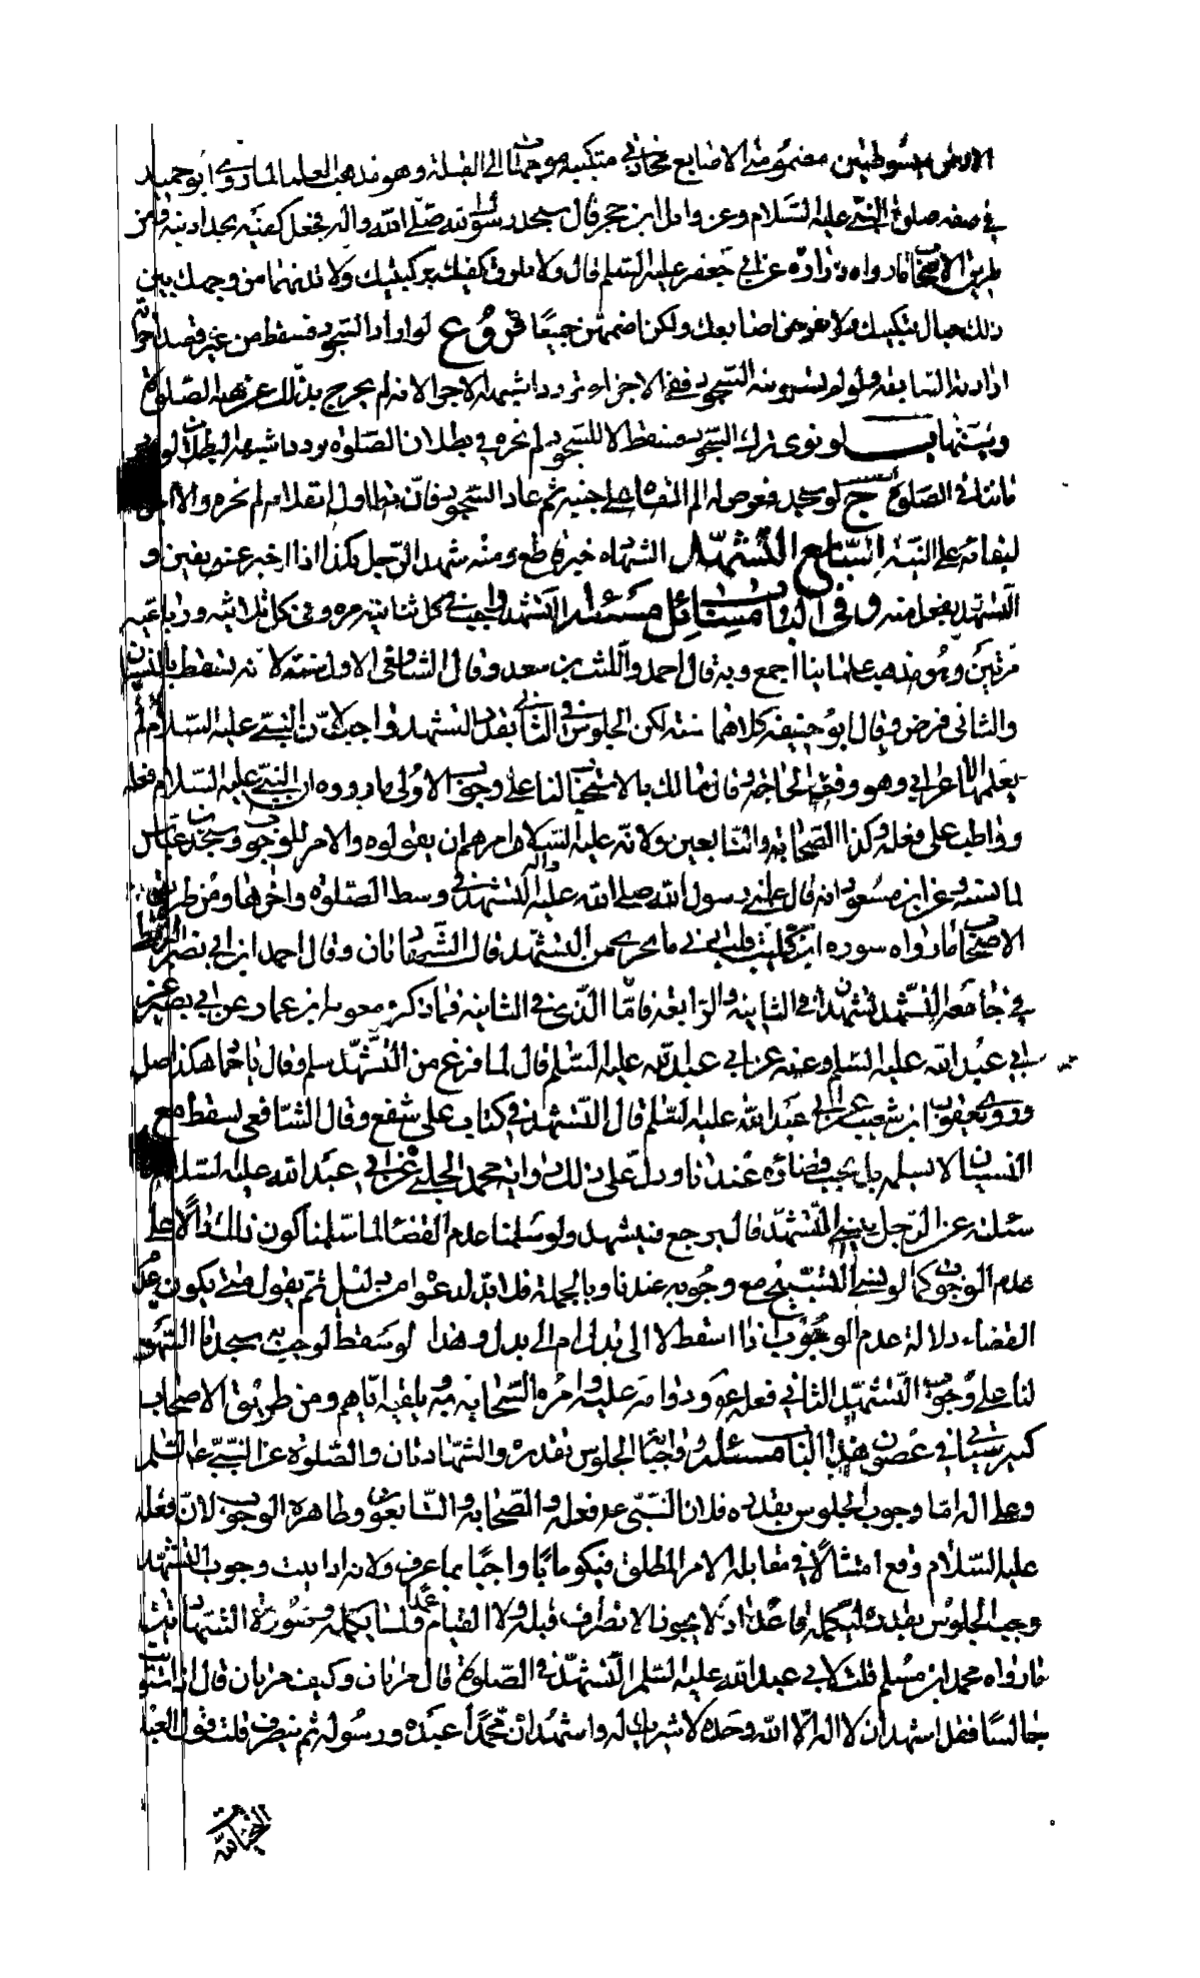 الارض مبسوطتين مضمومتي الاصابع محاذي منكبيه موجهات الى القبلة وهو مذهب العلماء لما روى ابو حميد
في صفة صلوة النبي عليه السلام وعن وائل ابن حجر قال سجد رسول الله صلى الله واله فجعل كفيه بحذاء اذنيه ومن
طريق الاصحاب ما رواه زرارة عن ابي جعفر عليه السلم قال ولا تلزق كفيك بركبتيك ولا تدنهما من وجهك بين
ذلك حيال منكبيك ولا تفرجن اصابعك ولكن اضممهن جميعا فروع لو اراد السجود فسقط من غير قصد
ارادته السابقة ولو لم ينو السجود ففي الاجزاء تردد اشبهه الاجزاء لانه لم يخرج بذلك عن هيئة الصلوة
ونيتها ب لو نوى ترك السجود فسقط لا للسجود لم يجزه وفي بطلان الصلوة تردد
الصلوة ج لو سجد فعرض له الم القاه على جنبيه ثم عاد للسجود فان تطاول انقلابه لم يجزه والا اجزأ
لبقائه على النية السابع التشهد الشهادة خبر قاطع ومنه شهد الرجل بكذا اذا اخبر عنه بيقين و
التشهد تفعل منه وفي الباب مسائل مسئلة التشهد واجب في كل ثنائية مرة وفي كل ثلاثية ورباعية
مرتين وهو مذهب علمائنا اجمع وبه قال احمد والليث بن سعد وقال الشافعي الاول سنة لانه يسقط بالنسيان
والثاني فرض وقال ابو حنيفة كلاهما سنة لكن الجلوس في الثاني بقدر التشهد واجب لان النبي عليه السلام لم
يعلمه الاعرابي وهو وقت الحاجة وقال مالك بالاستحباب لنا على وجوب الاولى ما رووه ان النبي عليه السلام فعله
وواظب على فعله وكذا الصحابة والتابعين ولانه عليه السلام امرهم ان يقولوه والامر للوجوب وسجد
لما نسيه وعن ابن مسعود انه قال علمني رسول الله صلى الله عليه واله التشهد في وسط الصلوة واخرها ومن طريق
الاصحاب ما رواه سورة ابن كليب قلت ادنى ما يجزي من التشهد قال الشهادتان وقال احمد ابن ابي نصر البزنطي
في جامعه التشهد تشهدان في الثانية والرابعة فاما الذي في الثانية فما ذكره معوية ابن عمار عن ابي بصير عن
ابي عبد الله عليه السلم وعنه عن ابي عبد الله عليه السلم قال لما فرغ من التشهد سلم وقال يا حماد هكذا صل
وروى يعقوب ابن شعيب عن ابي عبد الله عليه السلم قال التشهد في كتاب علي شفع وقال الشافعي لسقط مع
النسيان لا نسلم بل يجب قضاؤه عندنا ودل على ذلك رواية محمد الحلبي عن ابي عبد الله عليه السلم
سئلته عن الرجل ينسى التشهد قال يرجع فيتشهد ولو سلمنا عدم القضاء لما سلمنا كون ذلك دالا على
عدم الوجوب كما لو نسي التسبيح مع وجوبه عندنا وبالجملة فلا بد لدعواه من دليل ثم يقول متى يكون عدم
القضاء دلالة عدم الوجوب اذا اسقط لا الى بدل ام الى بدل وهذا لو سقط لوجب به سجدتا السهو
لنا على وجوب التشهد الثاني فعله ودوامه عليه وامره الصحابة به وتلقينه اياهم ومن طريق الاصحاب
كثير سيأتي في غضون هذا الباب مسئلة وواجبه الجلوس بقدره والشهادتان والصلوة على النبي عليه السلم
وعلى اله اما وجوب الجلوس بقدره فلان النبي ع فعله والصحابة والتابعون وظاهره الوجوب لان فعله
عليه السلام وقع امتثالا في مقابلة الامر المطلق فيكون بيانا واجبا بما عرف ولانه اذا ثبت وجوب التشهد
وجب الجلوس بقدره ليكمله قاعدا اذ لا يجوز الانصراف قبله ولا القيام عمدا ولما يكمله وصورة الشهادتين
ما رواه محمد ابن مسلم قلت لابي عبد الله عليه السلم التشهد في الصلوة قال مرتان وكيف مرتان قال اذا استويت
جالسا فقل اشهد ان لا اله الا الله وحده لا شريك له واشهد ان محمدا عبده ورسوله ثم تنصرف قلت قول العبد
التحيات لله